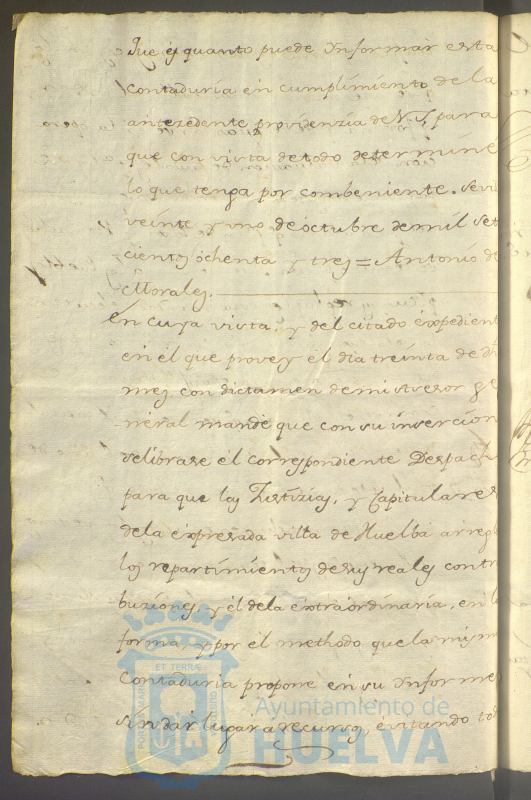 Que es quanto puede Informar esta
Contaduria en cumplimiento de la
antezedente providenzia de VS, para
que con vista de todo determine
lo que tenga por combeniente. Sevi
veinte y uno de octubre de mil set
cientos ochenta y tres = Antonio de
Morales.
En cuya vista, y del citado expedient
en el que provey el dia treinta de dh
mes, con dictamen de mi Asesor ge
neral mandé que con su insercion
se librase el correspondiente Despac
para que las Justizias, y Capitulares
dela expresada villa de Huelba arregl
los repartimientos de sus reales contr
buziones, y el dela extraordinaria, en l
forma, y por el methodo que la mism
Contaduria propone en su Informe
sin dar lugar a recursos, evitando tod
Ayuntamiento de
HUELVA